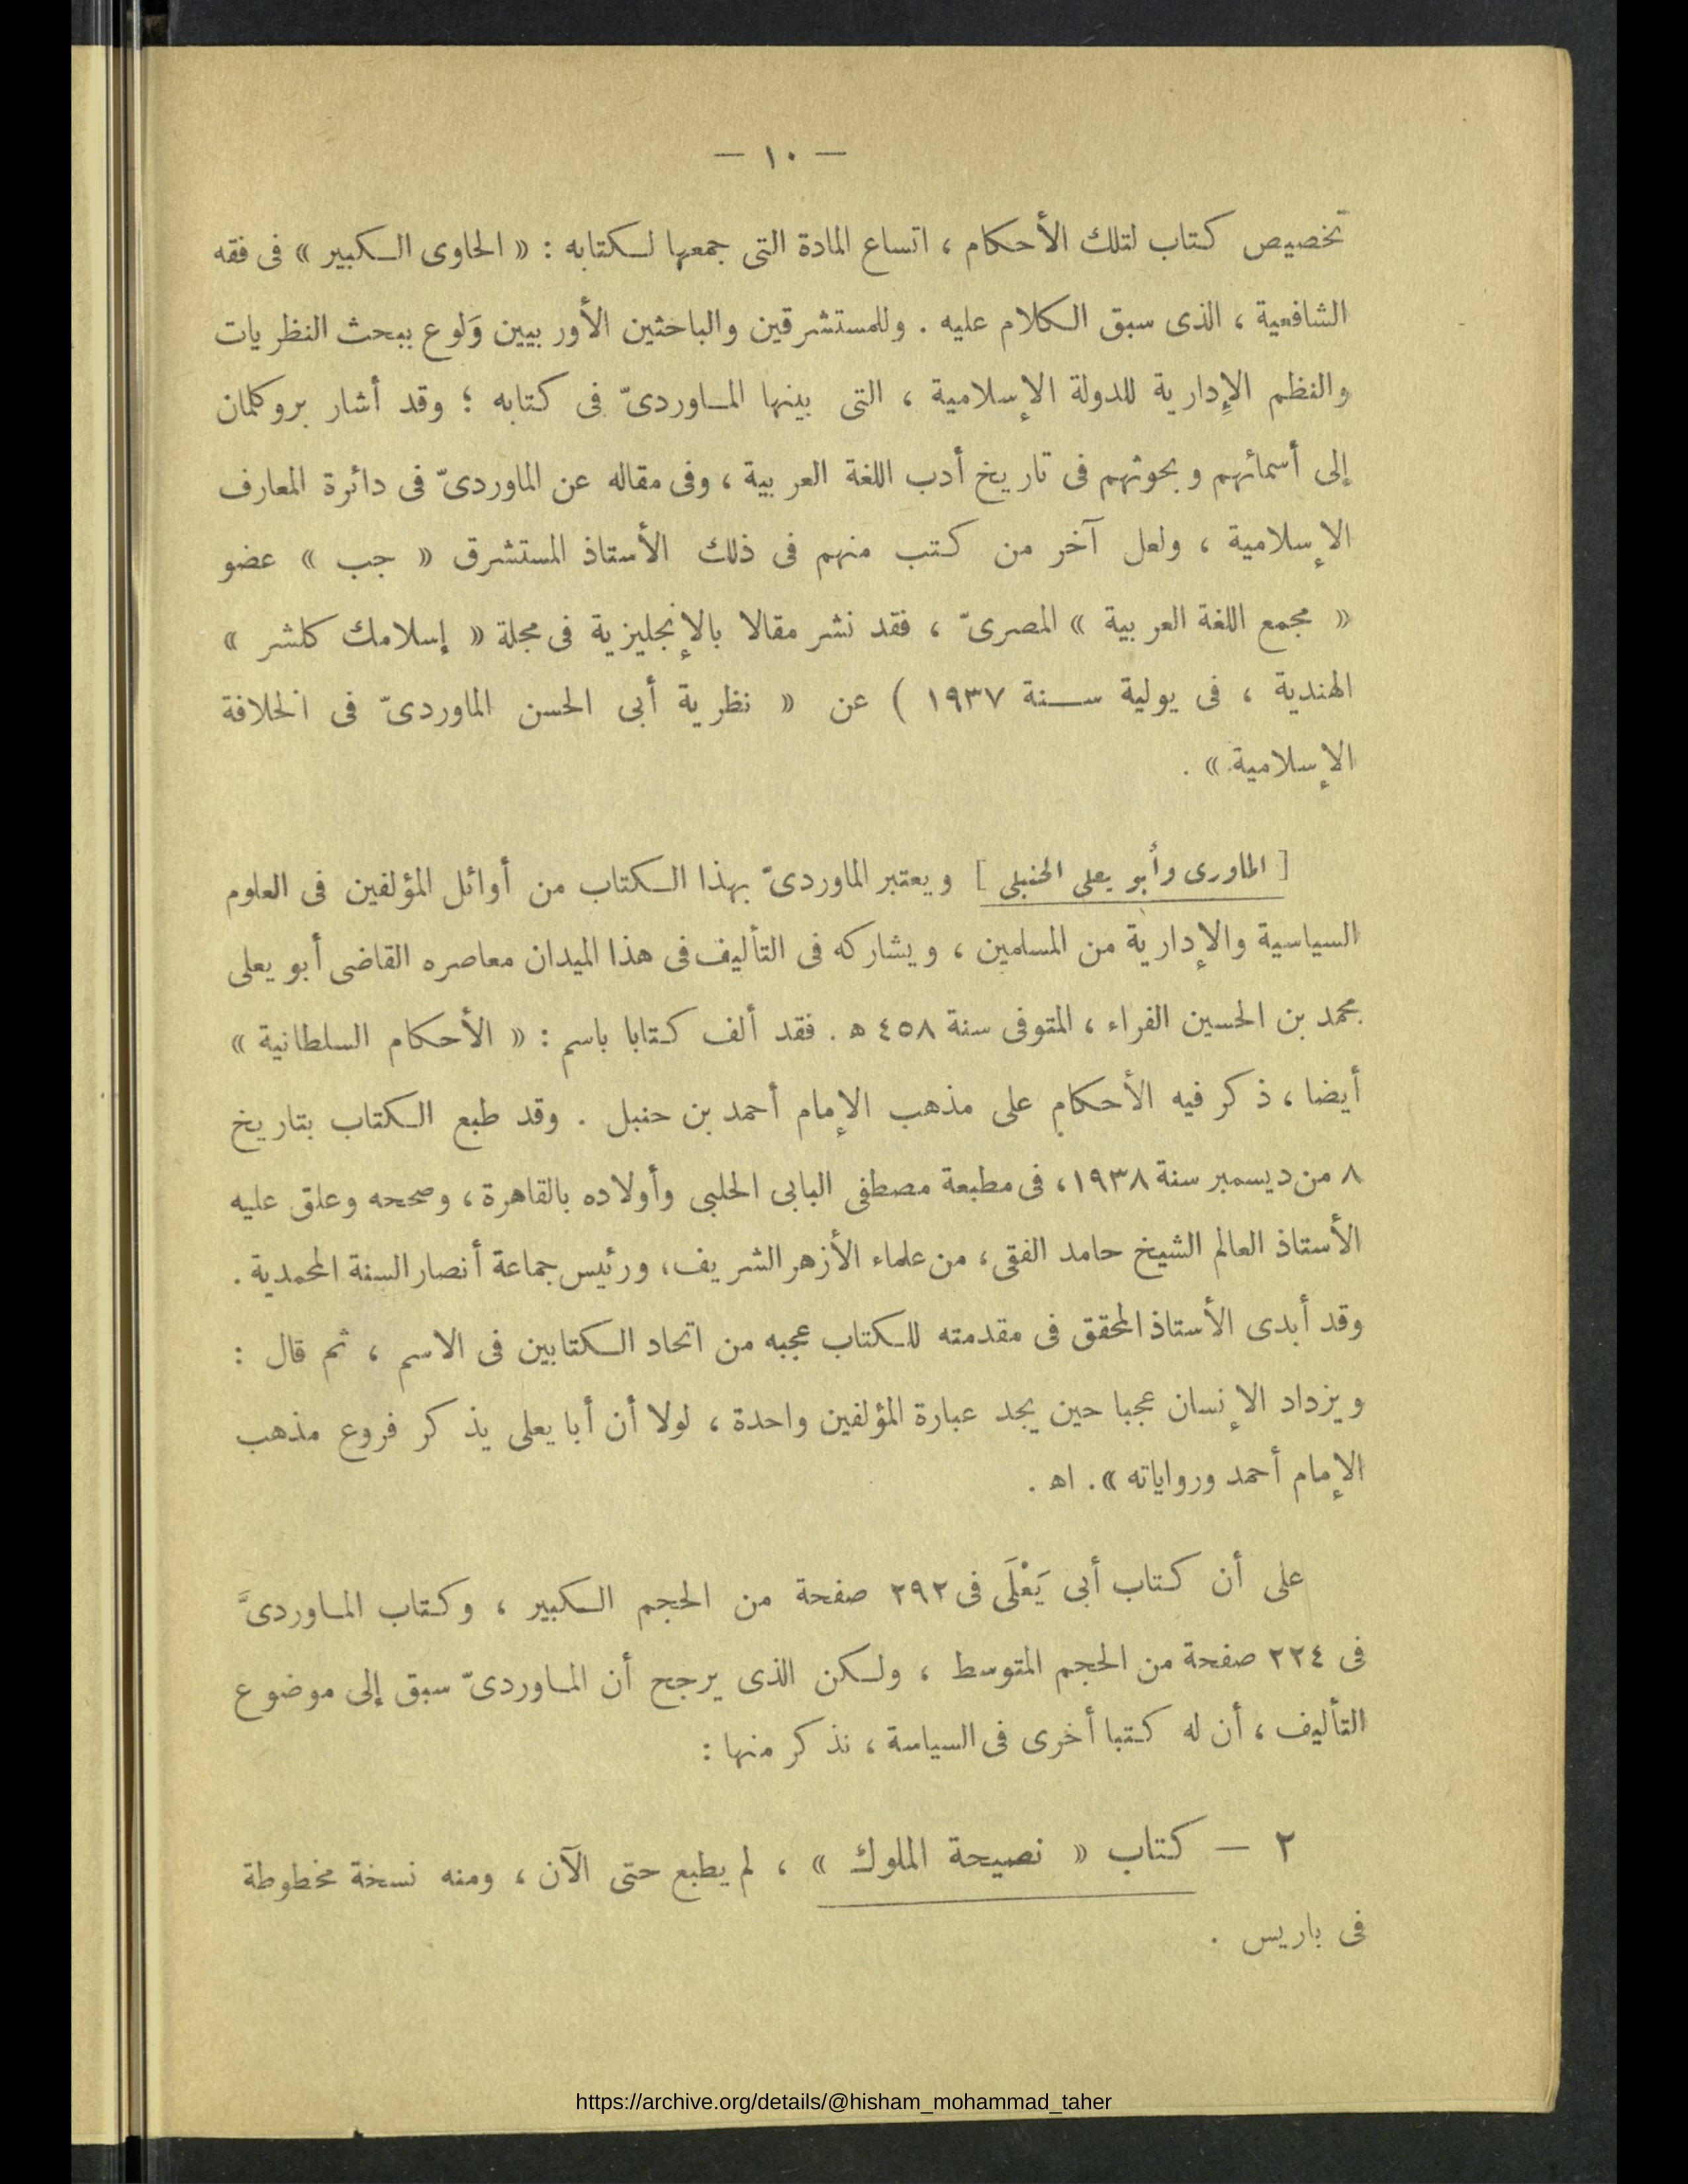 — ١٠ —
تخصيص كتاب لتلك الأحكام ، اتساع المادة التى جمعها لكتابه : « الحاوى الكبير » فى فقه
الشافعية ، الذى سبق الكلام عليه . وللمستشرقين والباحثين الأوربيين وَلوع ببحث النظريات
والنظم الإدارية للدولة الإسلامية ، التى بينها الماوردىّ فى كتابه ؛ وقد أشار بروكلمان
إلى أسمائهم وبحوثهم فى تاريخ أدب اللغة العربية ، وفى مقاله عن الماوردىّ فى دائرة المعارف
الإسلامية ، ولعل آخر من كتب منهم فى ذلك الأستاذ المستشرق « جب » عضو
« مجمع اللغة العربية » المصرىّ ، فقد نشر مقالا بالإنجليزية فى مجلة « إسلامك كلشر »
الهندية ، فى يولية سنة ١٩٣٧ ) عن « نظرية أبى الحسن الماوردىّ فى الخلافة
الإسلامية » .
[ الماورى وأبو يعلى الحنبلى ] ويعتبر الماوردىّ بهذا الكتاب من أوائل المؤلفين فى العلوم
السياسية والإدارية من المسلمين ، ويشاركه فى التأليف فى هذا الميدان معاصره القاضى أبو يعلى
محمد بن الحسين الفراء ، المتوفى سنة ٤٥٨ ه . فقد ألف كتابا باسم : « الأحكام السلطانية »
أيضا ، ذكر فيه الأحكام على مذهب الإمام أحمد بن حنبل . وقد طبع الكتاب بتاريخ
٨ من ديسمبر سنة ١٩٣٨ ، فى مطبعة مصطفى البابى الحلبى وأولاده بالقاهرة ، وصححه وعلق عليه
الأستاذ العالم الشيخ حامد الفقى ، من علماء الأزهر الشريف ، ورئيس جماعة أنصار السنة المحمدية .
وقد أبدى الأستاذ المحقق فى مقدمته للكتاب عجبه من اتحاد الكتابين فى الاسم ، ثم قال :
ويزداد الإنسان عجبا حين يجد عبارة المؤلفين واحدة ، لولا أن أبا يعلى يذكر فروع مذهب
الإمام أحمد ورواياته » . اه .
على أن كتاب أبى يَعْلَى فى ٢٩٢ صفحة من الحجم الكبير ، وكتاب الماوردىَّ
فى ٢٢٤ صفحة من الحجم المتوسط ، ولكن الذى يرجح أن الماوردىّ سبق إلى موضوع
التأليف ، أن له كتبا أخرى فى السياسة ، نذكر منها :
٢ — كتاب « نصيحة الملوك » ، لم يطبع حتى الآن ، ومنه نسخة مخطوطة
فى باريس .
https://archive.org/details/@hisham_mohammad_taher